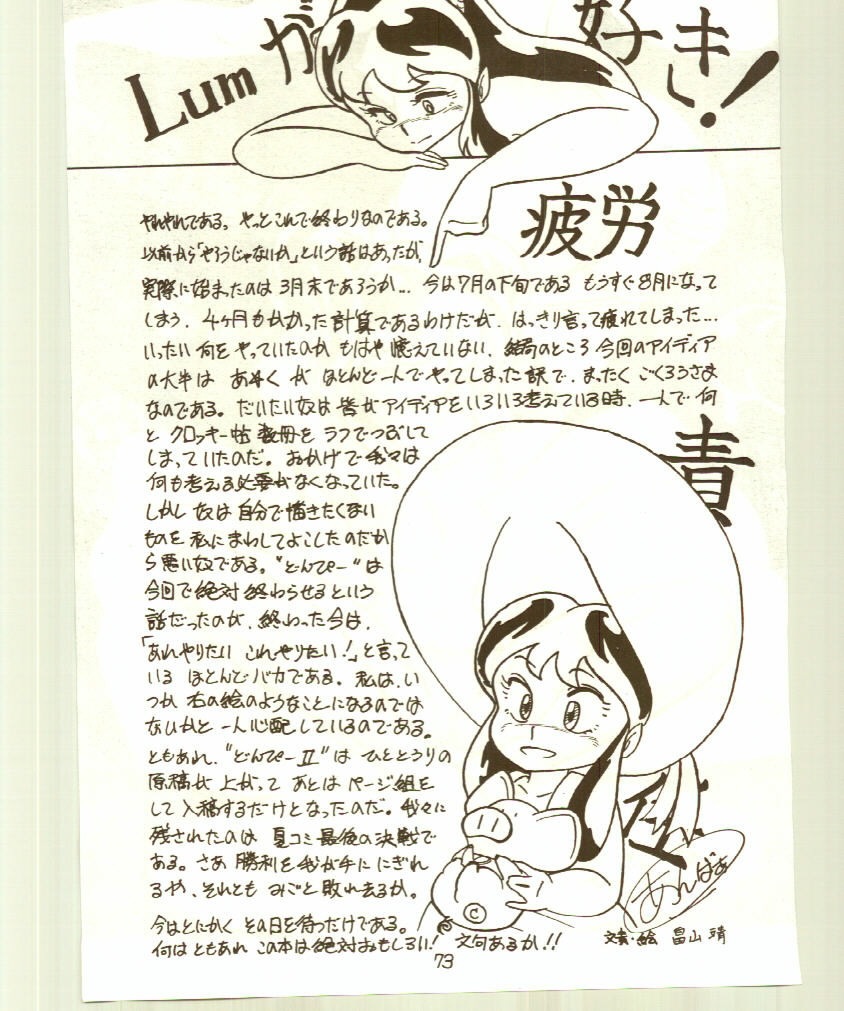 Lumが好きし!
疲労
やれやれである。やっとこれで終わりなのである。
以前から「やろうじゃないか」という話はあったが、
実際に始まったのは3月末であろうか… 今は7月の下旬である もうすぐ8月になって
しまう。4ヶ月もかかった計算であるわけだが、はっきり言って疲れてしまった…
いったい何をやっていたのか もはや憶えていない、結局のところ今回のアイディア
の大半は あめく が ほとんど一人でやってしまった訳で、まったく ごくろうさま
なのである。だいたい奴は皆がアイディアをいろいろ考えている時、一人で何
と クロッキー帖 数冊を ラフでつぶして
しまっていたのだ。おかげで我々は
何も考える必要がなくなっていた。
しかし 奴は自分で描きたくない
ものを私にまわしてよこしたのだか
ら悪い奴である。"どんぴー"は
今回で絶対終わらせるという
話だったのが、終わった今は、
「あれやりたい これやりたい!」と言って
いる ほとんどバカである。私は、い
つか 右の絵のようなことになるのでは
ないかと 一人心配しているのである。
ともあれ、"どんぴーⅡ"は ひととうりの
原稿が 上がって あとは ページ組を
して入稿するだけとなったのだ。我々に
残されたのは 夏コミ最後の決戦で
ある。さあ 勝利を我が手に にぎれ
るや、それとも みごと敗れ去るか。
今はとにかく その日を待つだけである。
何はともあれ この本は絶対おもしろい! 文句あるか!!
責任
あんばぁ
文責・絵 畠山 靖
73